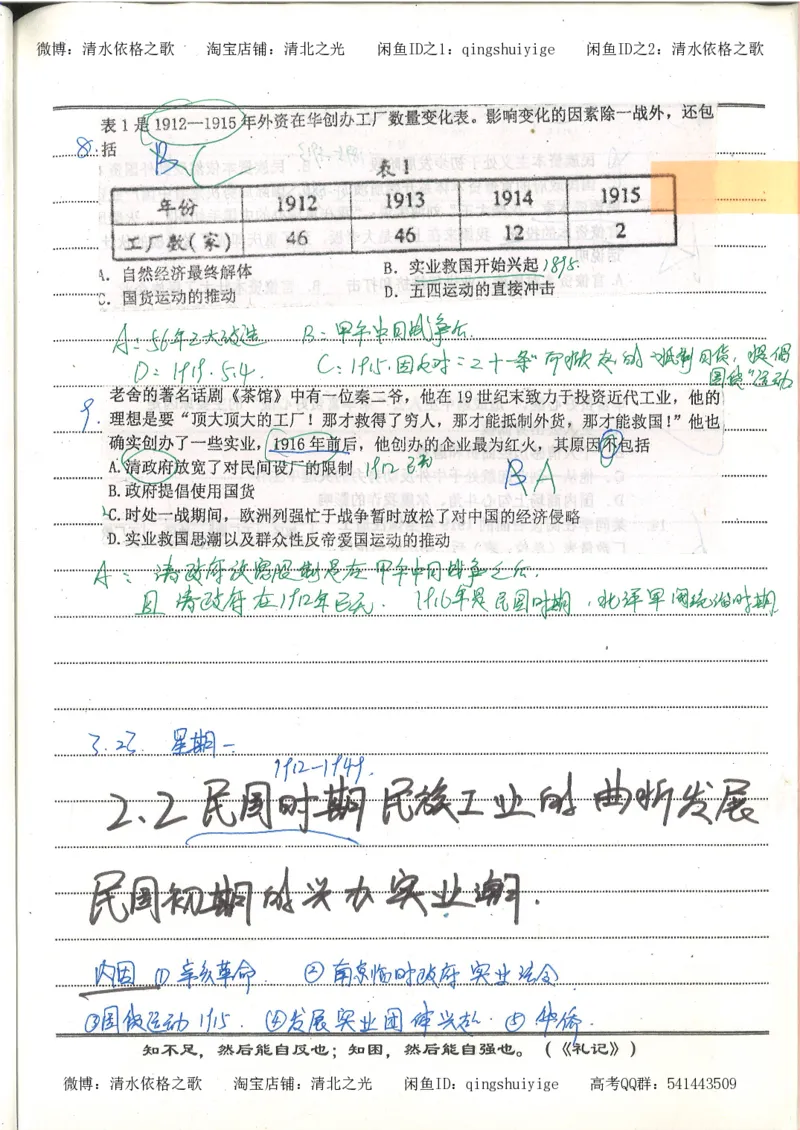 微博：清水依格之歌 淘宝店铺：清北之光 闲鱼ID之1：qingshuiyige 闲鱼ID之2：清水依格之歌
表1是1912—1915年外资在华创办工厂数量变化表。影响变化的因素除一战外，还包
8. 括 B C
表1
年份 1912 1913 1914 1915
工厂数(家) 46 46 12 2
A. 自然经济最终解体 B. 实业救国开始兴起 1895.
C. 国货运动的推动 D. 五四运动的直接冲击
A：56年三大改造 B：甲午中日战争后.
D：1919.5.4. C：1915.因反对"二十一条"而掀起的"抵制日货，提倡
国货"运动
老舍的著名话剧《茶馆》中有一位秦二爷，他在19世纪末致力于投资近代工业，他的
9. 理想是要“顶大顶大的工厂！那才救得了穷人，那才能抵制外货，那才能救国！”他也
确实创办了一些实业，1916年前后，他创办的企业最为红火，其原因不包括
A.清政府放宽了对民间设厂的限制 1912已 B A
B.政府提倡使用国货
C.时处一战期间，欧洲列强忙于战争暂时放松了对中国的经济侵略
D.实业救国思潮以及群众性反帝爱国运动的推动
A：清政府放宽限制是在甲午中日战争之后.
且清政府在1912年已无. 1916年是民国时期，北洋军阀统治时期
3.23. 星期一
1912—1949.
2.2 民国时期民族工业的曲折发展
民国初期的兴办实业潮.
内因 ①辛亥革命. ②南京临时政府实业法令
③国货运动1915. ④发展实业团体兴起. ⑤华侨.
知不足，然后能自反也；知困，然后能自强也。（《礼记》）
微博：清水依格之歌 淘宝店铺：清北之光 闲鱼ID：qingshuiyige 高考QQ群：541443509